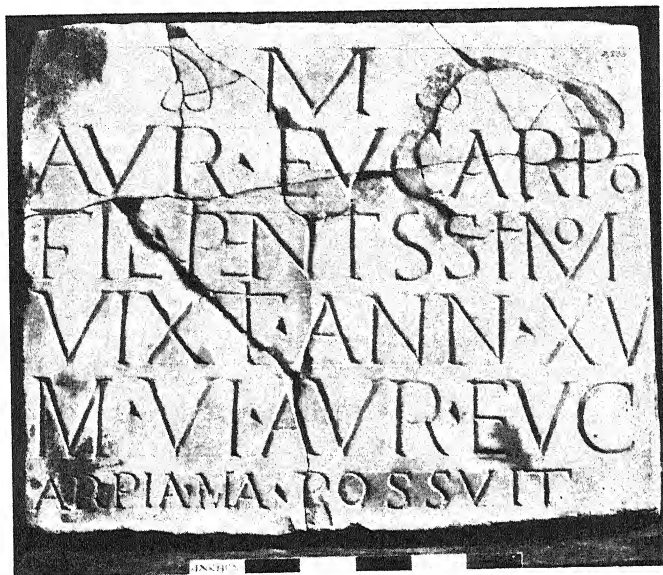 D M
AVR · EVCARPO
FIL PIENTISSIMO
VIXIT · ANN · XV
M · VI · AVR · EVC
ARPIA · MA · POSSVIT
INCHES